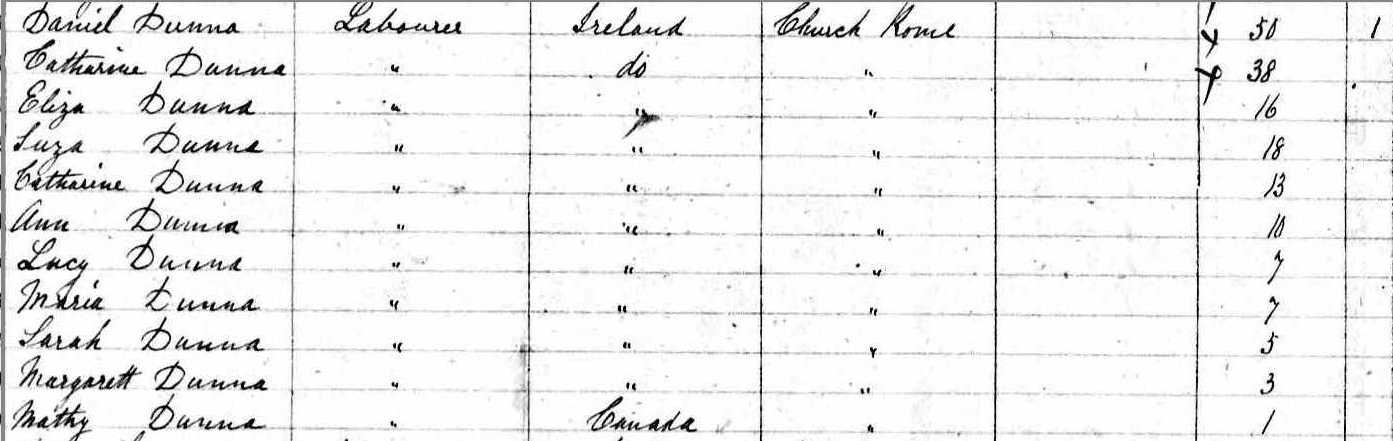 Daniel Dunna Labourer Ireland Church Rome 50 1
Catharine Dunna " do " 38
Eliza Dunna " " " 16
Suza Dunna " " " 18
Catharine Dunna " " " 13
Ann Dunna " " " 10
Lucy Dunna " " " 7
Maria Dunna " " " 7
Sarah Dunna " " " 5
Margarett Dunna " " " 3
Mathy Dunna " Canada " 1